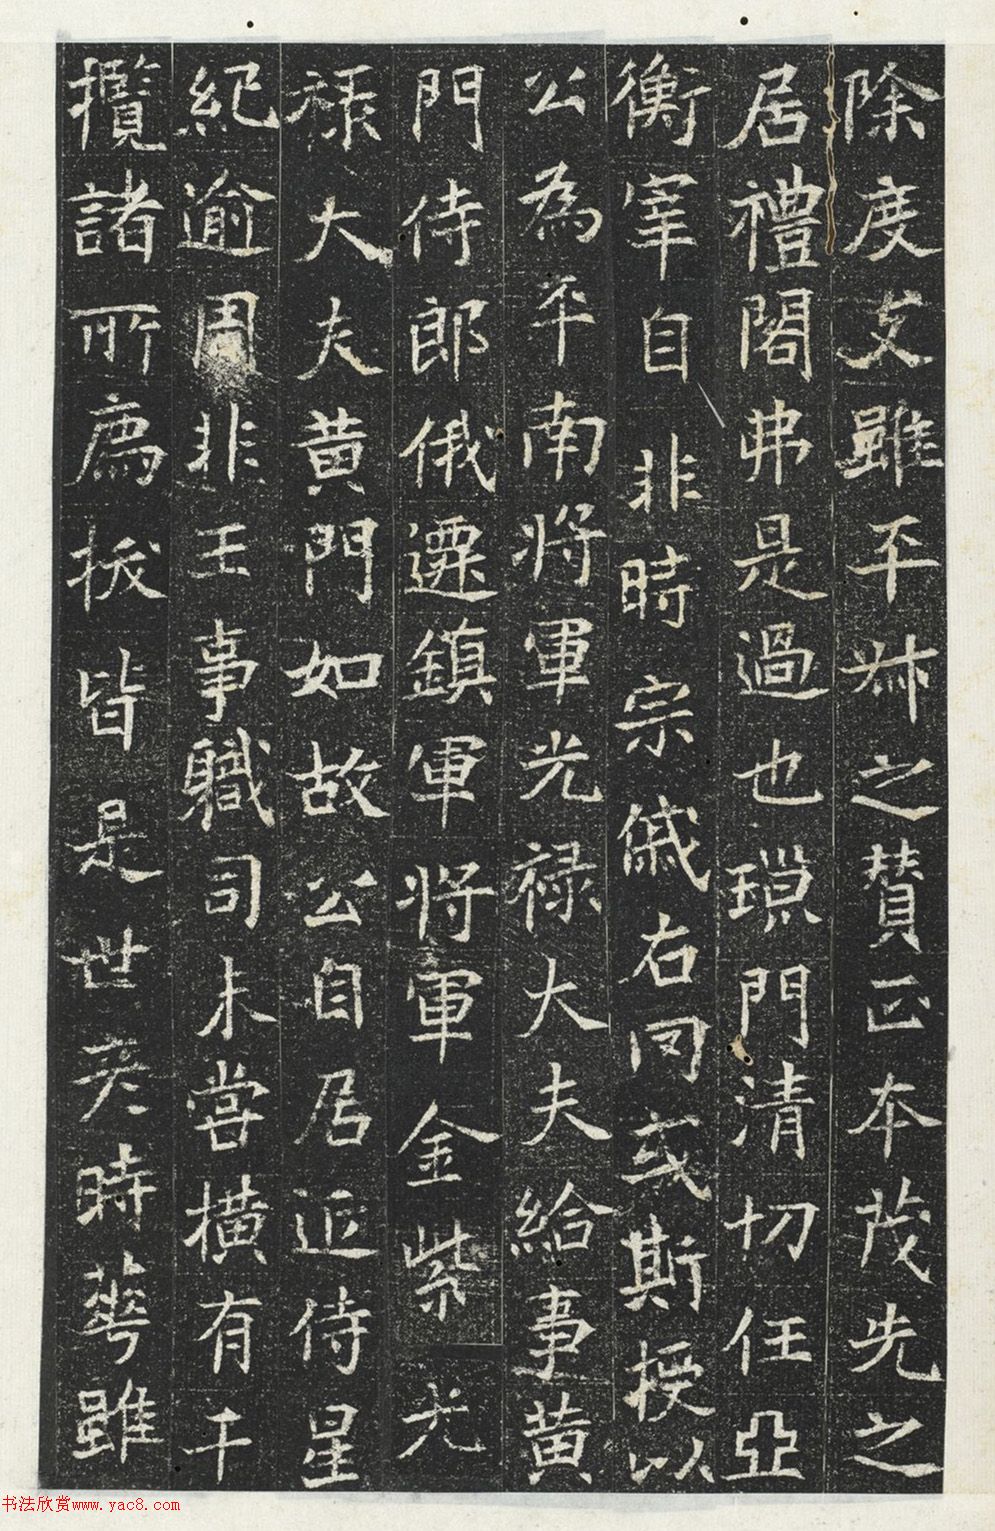 除度支雖平州之賛正本茂先之
居禮閣弗是過也瑣門清切任亞
衡宰自非時宗儀右罔或斯授以
公為平南將軍光禄大夫給事黄
門侍郎俄遷鎮軍將軍金紫光
禄大夫黄門如故公自居近侍星
紀逾周非王事職司未嘗橫有干
攬諸所廌拔皆是世彦時華雖
书法欣赏www.yac8.com